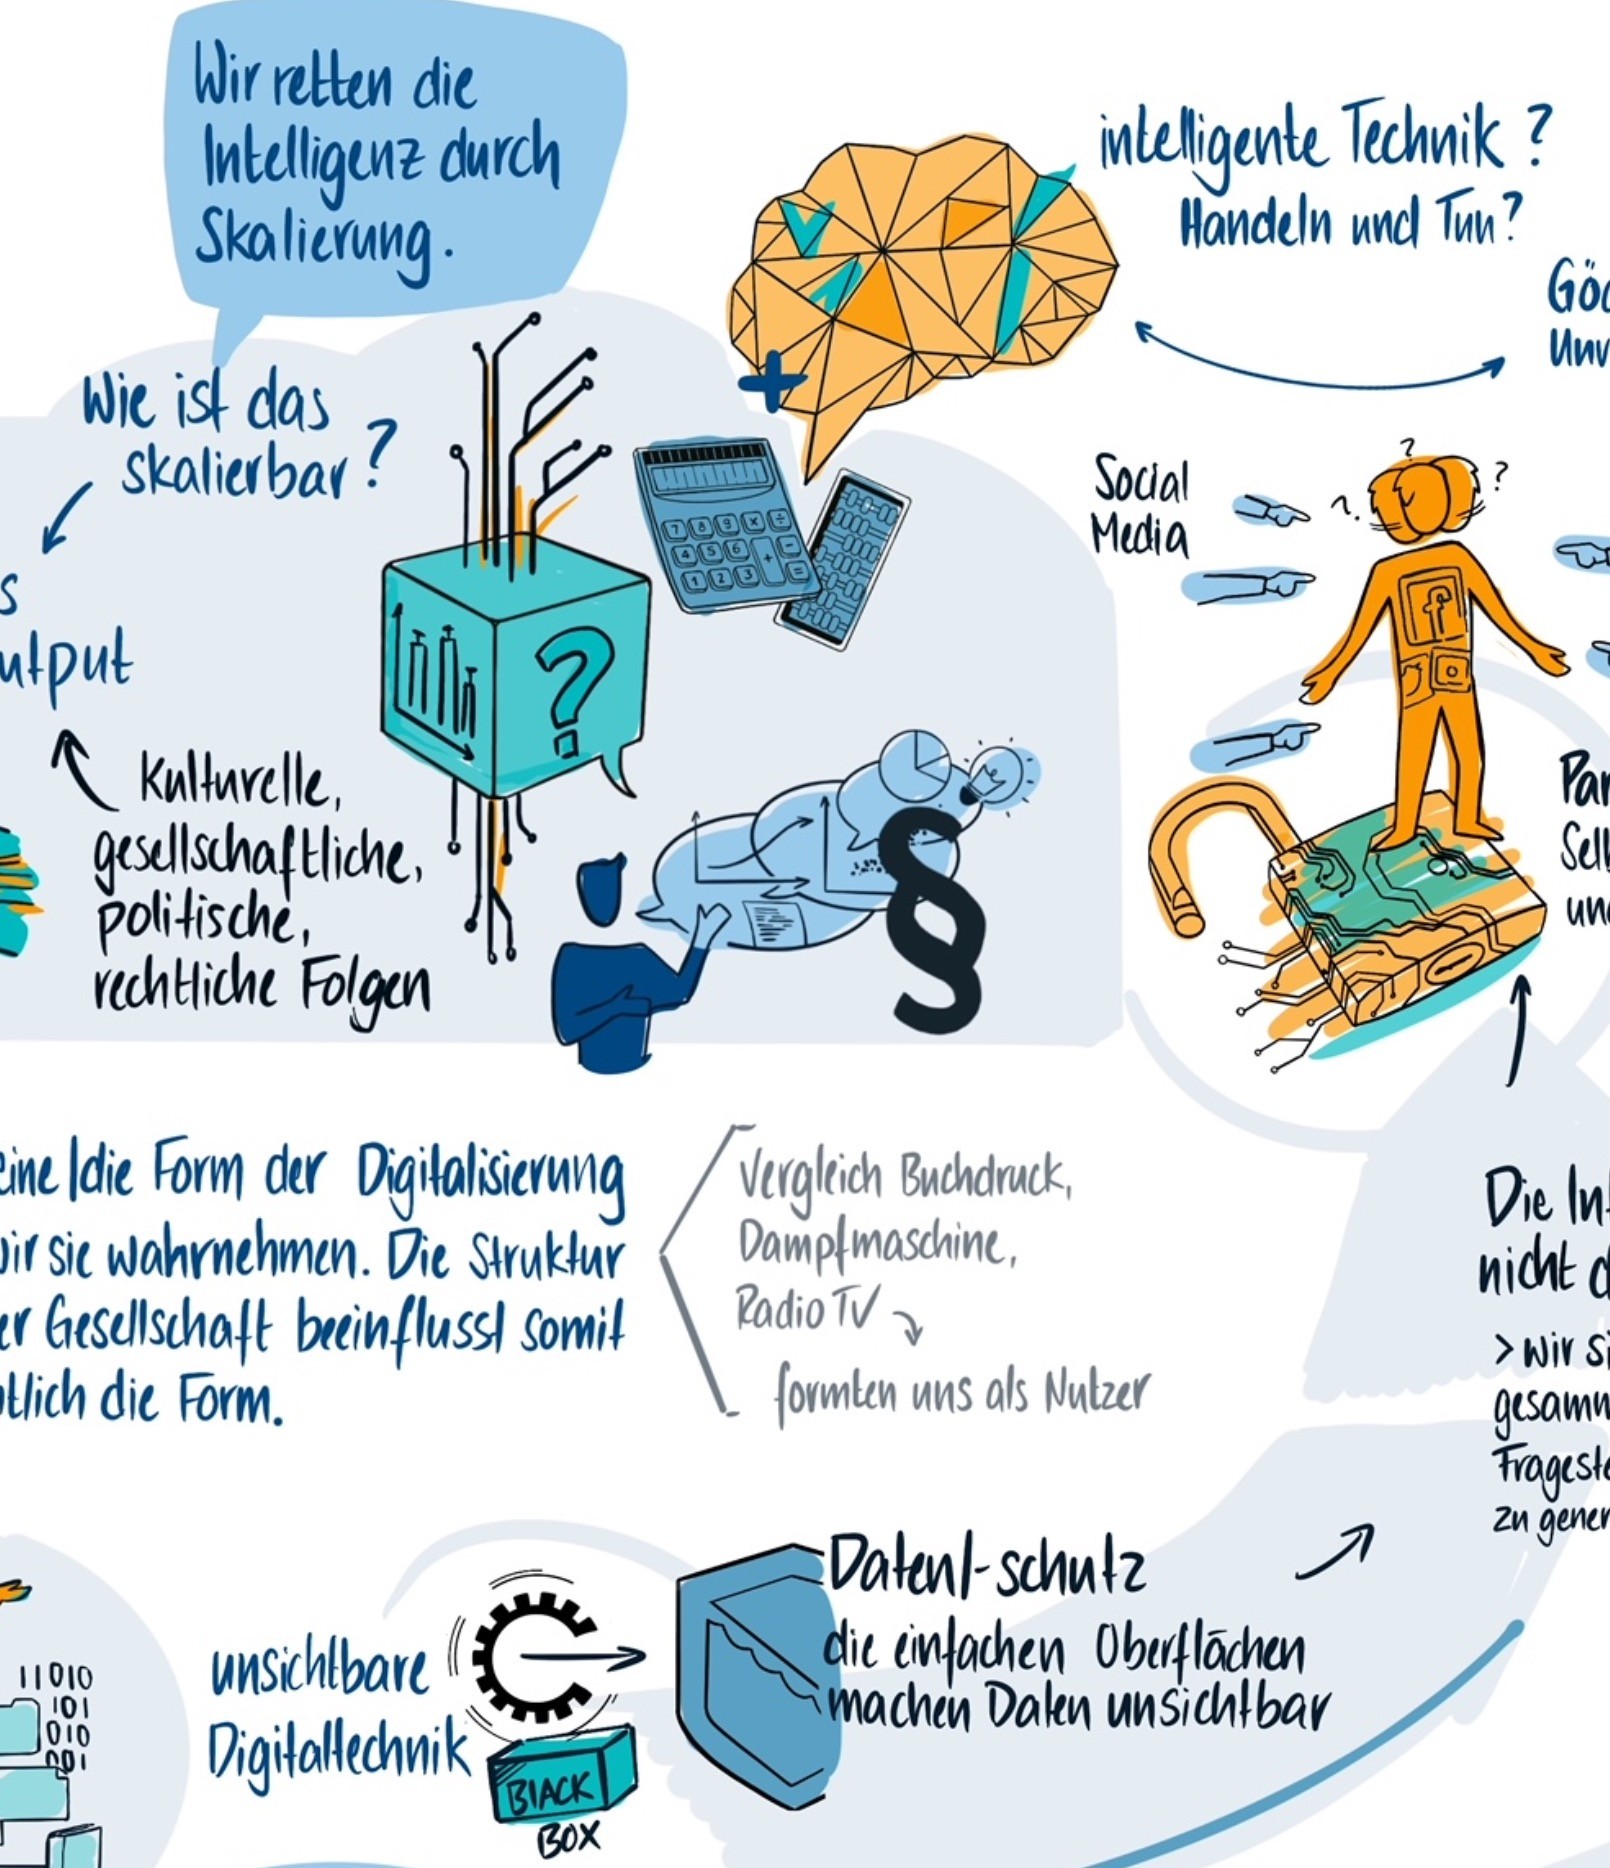 Wir retten die
Intelligenz durch
Skalierung.
Wie ist das
skalierbar?
s
utput
Kulturelle,
gesellschaftliche,
politische,
rechtliche Folgen
intelligente Technik?
Handeln und Tun?
Göd
Unv
7 8 9 X ÷
4 5 6 -
1 2 3 + =
?
§
Social
Media
? ? ?
f
Par
Sell
und
eine/die Form der Digitalisierung
wir sie wahrnehmen. Die Struktur
er Gesellschaft beeinflusst somit
tlich die Form.
Vergleich Buchdruck,
Dampfmaschine,
Radio TV
formten uns als Nutzer
Die Inf
nicht d
> wir si
gesamm
Frageste
zu gener
11010
101
010
001
unsichtbare
Digitaltechnik
BLACK
BOX
Daten/-schutz
die einfachen Oberflächen
machen Daten unsichtbar